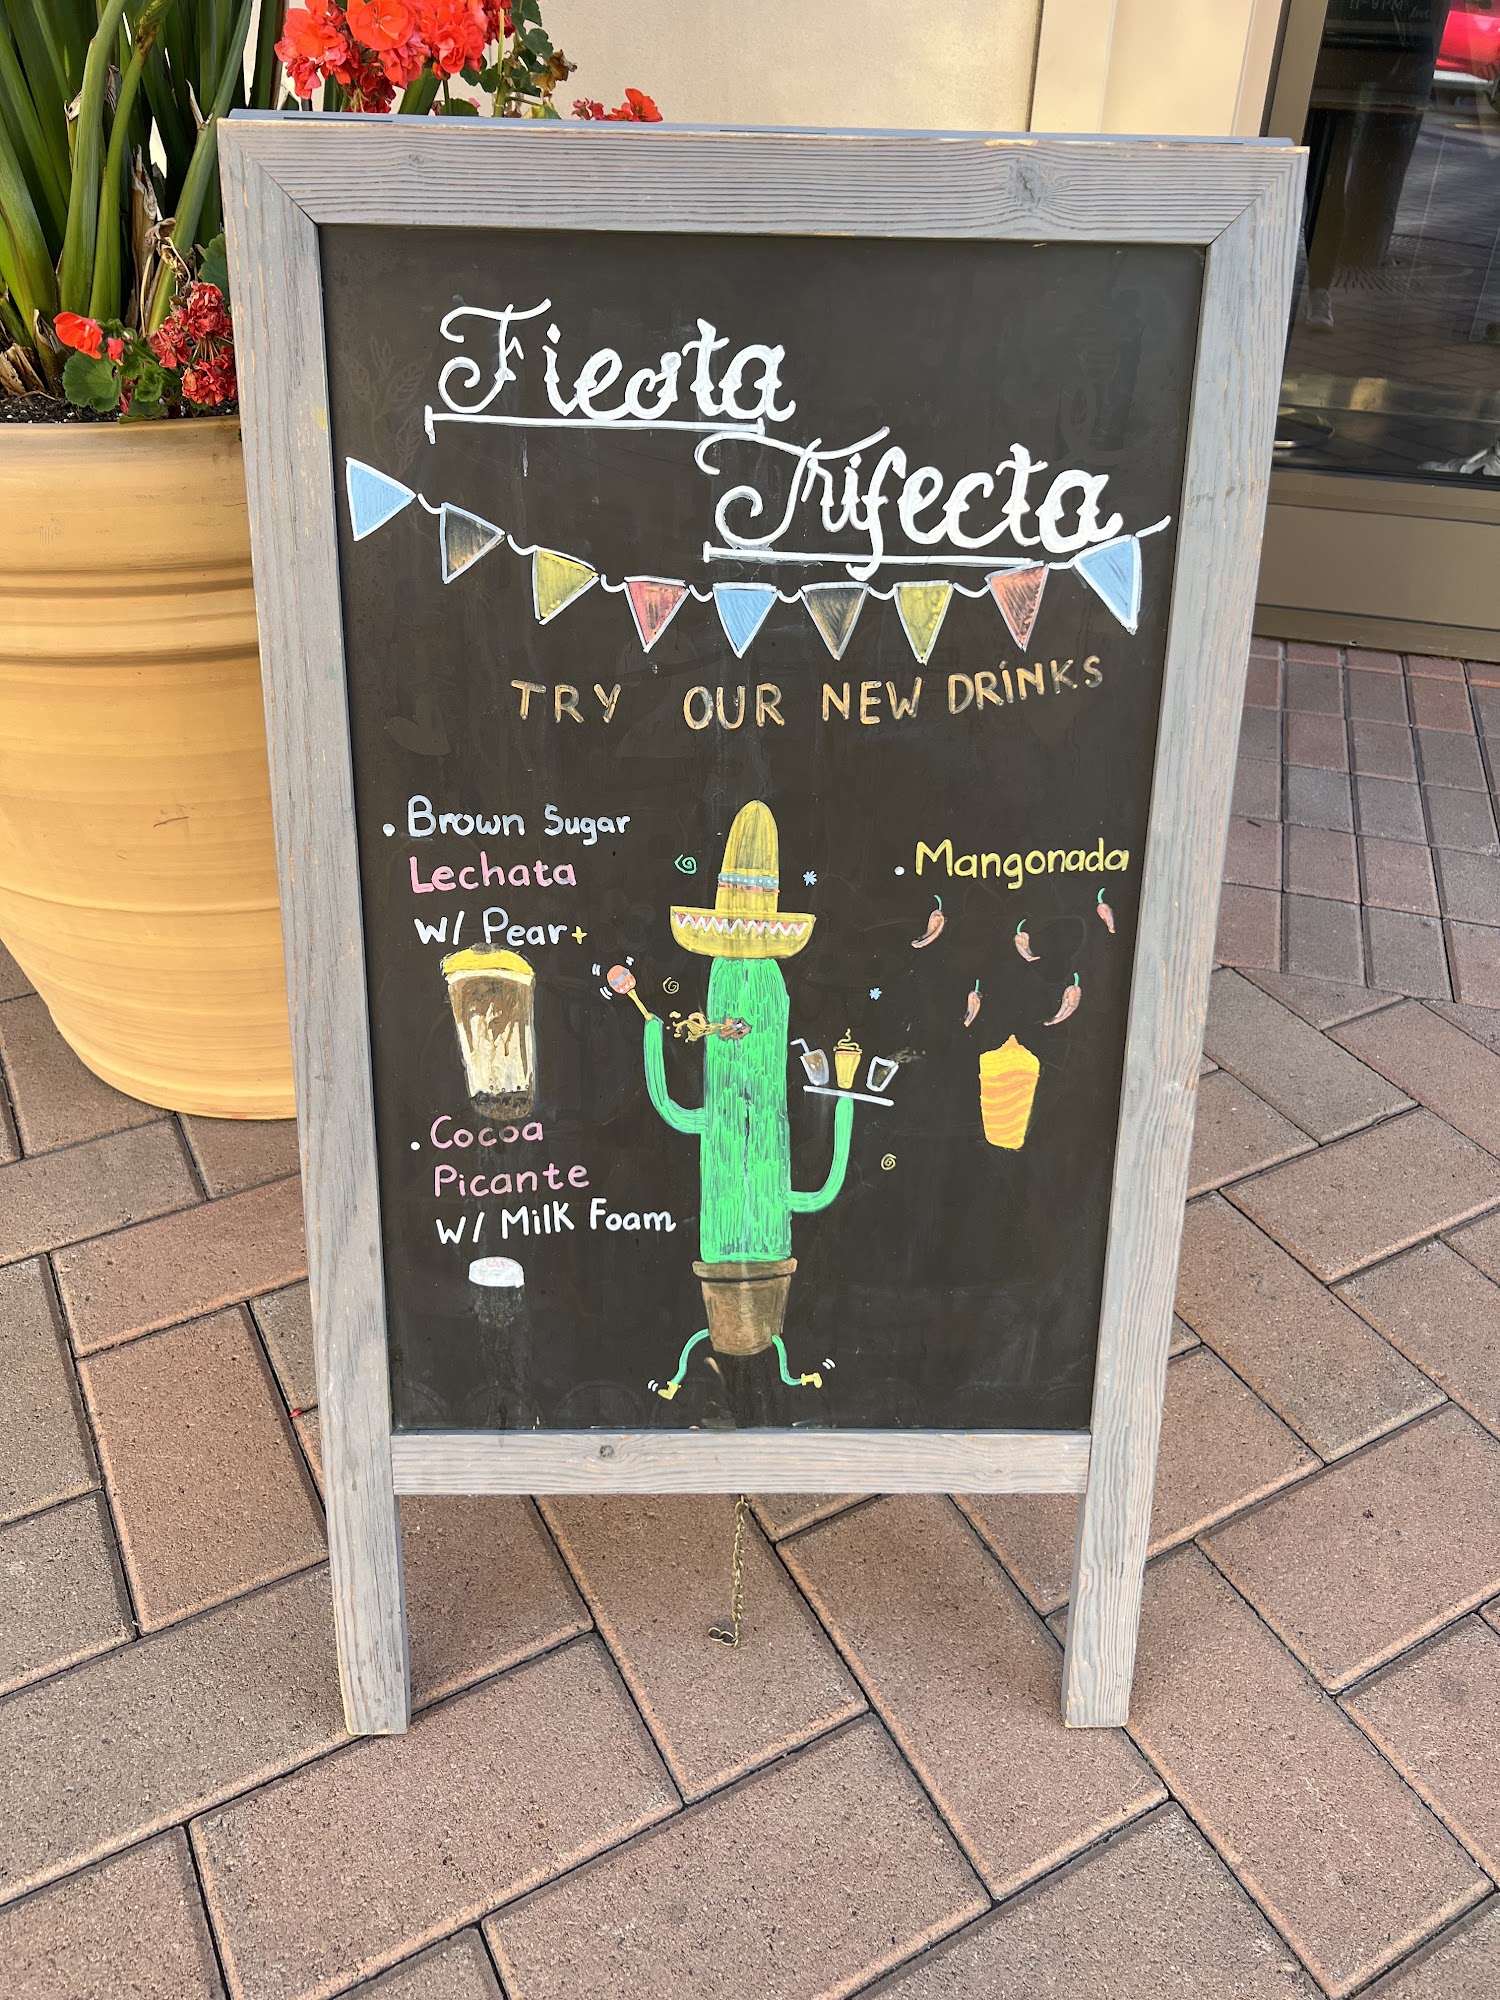 Fiesta
Trifecta
TRY OUR NEW DRINKS
• Brown Sugar
Lechata
W/ Pear+
• Mangonada
• Cocoa
Picante
W/ Milk Foam
11-9PM